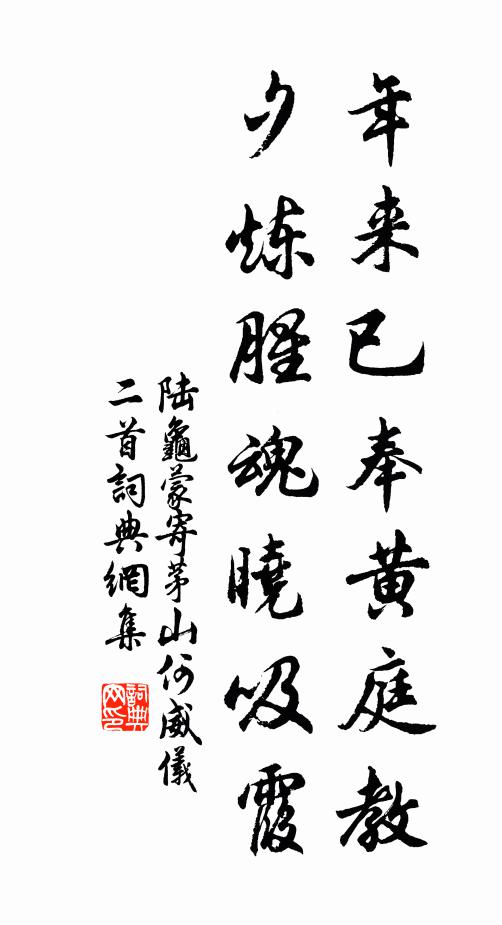 年来已奉黄庭教
夕炼腥魂曉吸霞
陆龜蒙寄茅山何威儀
二首詞典網集
詞典
网印